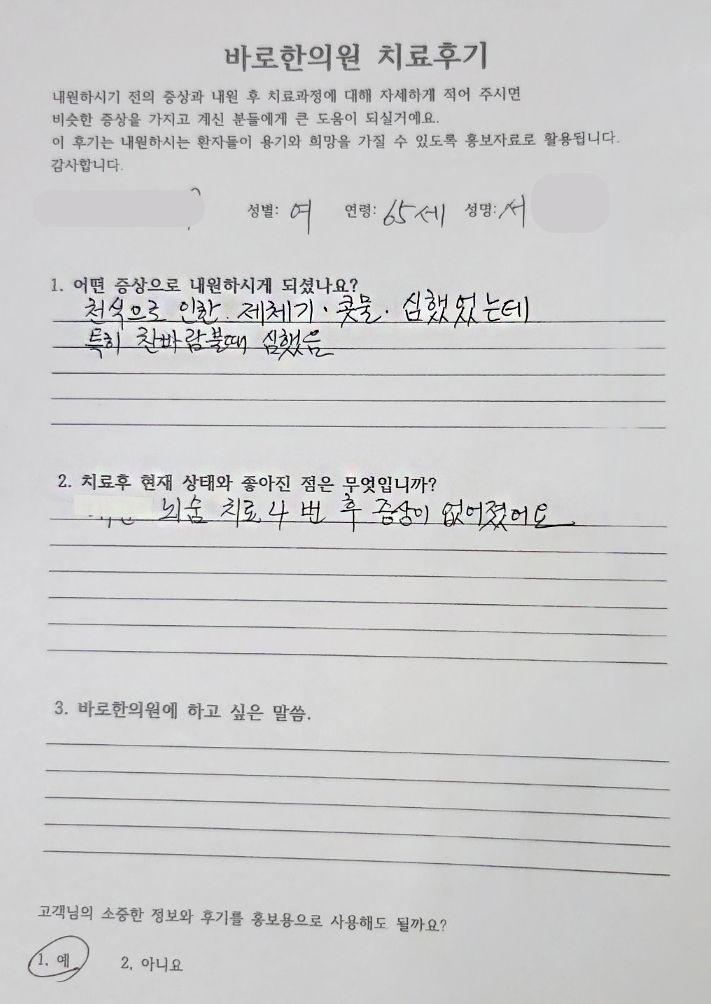 바로한의원 치료후기
내원하시기 전의 증상과 내원 후 치료과정에 대해 자세하게 적어 주시면
비슷한 증상을 가지고 계신 분들에게 큰 도움이 되실거예요.
이 후기는 내원하시는 환자들이 용기와 희망을 가질 수 있도록 홍보자료로 활용됩니다.
감사합니다.
성별: 여 연령: 65세 성명: 서
1. 어떤 증상으로 내원하시게 되셨나요?
천식으로 인한. 제체기. 콧물. 심했었는데
특히 찬바람불때 심했음
2. 치료후 현재 상태와 좋아진 점은 무엇입니까?
뇌숨 치료 4번 후 증상이 없어졌어요.
3. 바로한의원에 하고 싶은 말씀.
고객님의 소중한 정보와 후기를 홍보용으로 사용해도 될까요?
1. 예 2. 아니요